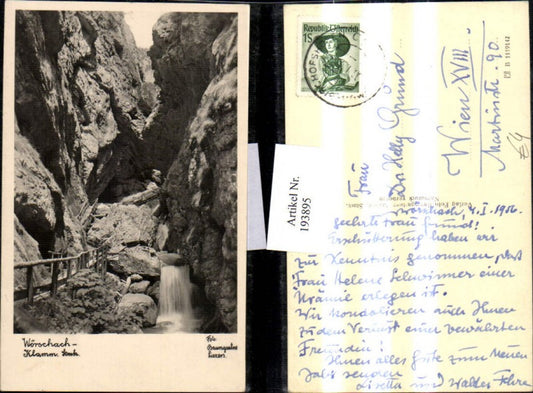 Wörschach-
Klamm
Foto
Artikel Nr.
193895
Republik Österreich
1S
Frau
Dr Helly Gründ
Wien XVIII
Martinstr. 90
Wörschach, 4.I.1956.
geehrte Frau
Erschütterung haben wir
zur Kenntnis genommen, daß
Frau Helene Schwimmer einer
Urämie erlegen ist.
Wir kondolieren auch Ihnen
zu dem Verlust einer bewährten
Freundin!
Ihnen alles Gute zum Neuen
Jahr senden
Lisetta und Walter